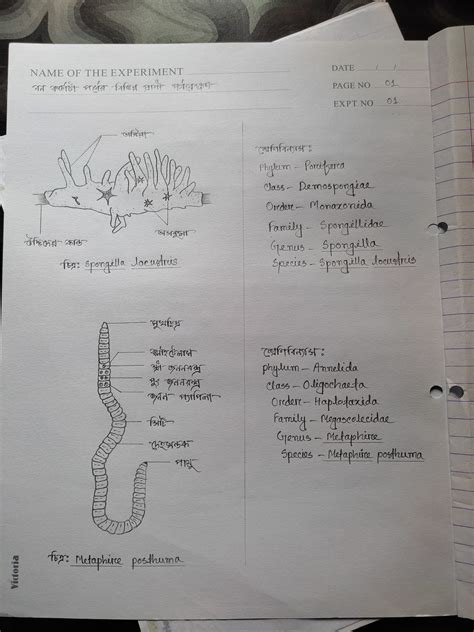 NAME OF THE EXPERIMENT
DATE / /
PAGE NO 01
EXPT NO 01
পর্বের বিভিন্ন প্রাণী পর্যবেক্ষণ
শ্রেণিবিন্যাস:
Phylum - Porifera
Class - Demospongiae
Order - Monaxonida
Family - Spongillidae
Genus - Spongilla
Species - Spongilla locustris
উদ্ভিদের কান্ড
চিত্র: Spongilla locustris
মুখছিদ্র
ক্লাইটেলাম
স্ত্রী জননরন্ধ্র
পুং জননরন্ধ্র
জনন প্যাপিলা
সিটি
দেহখন্ডক
পায়ু
চিত্র: Metaphire posthuma
শ্রেণিবিন্যাস:
phylum - Annelida
Class - Oligochaeta
Order - Haplotaxida
Family - Megascolecidae
Genus - Metaphire
Species - Metaphire posthuma
Victoria